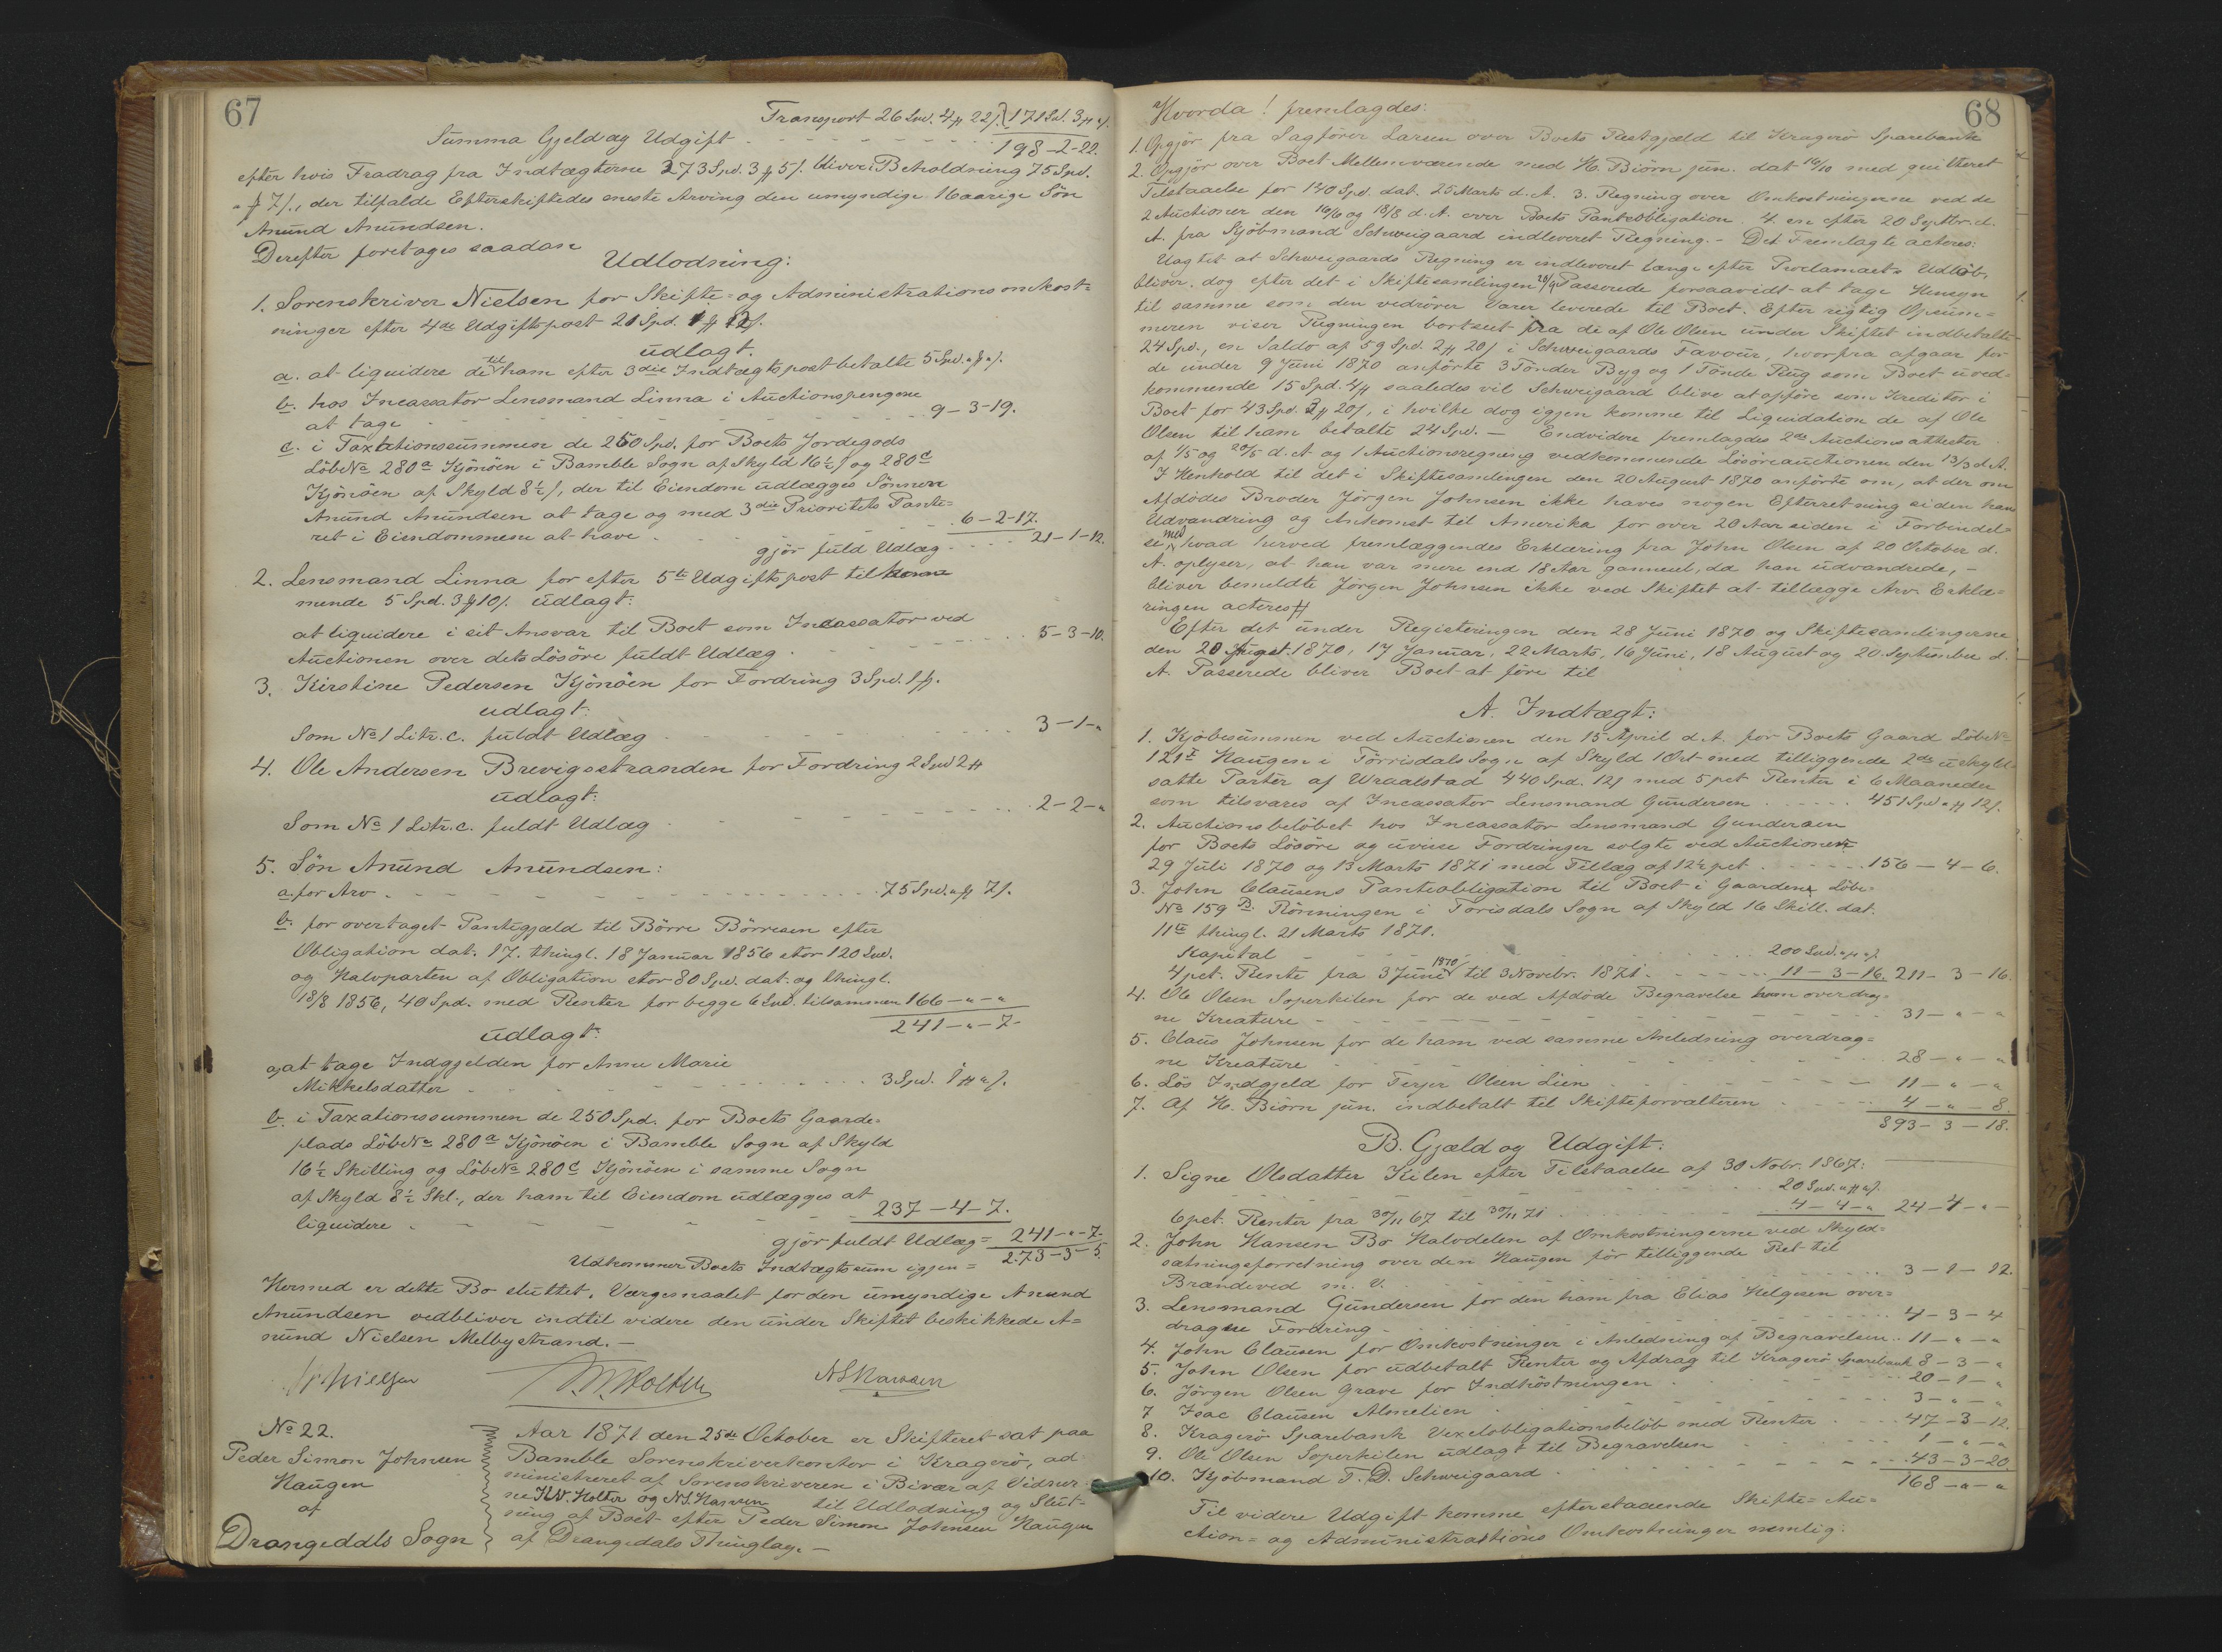 67
Transport 26 Spd. 4 ℔ 22 ſ. 171 Spd. 3 ℔ " ſ.
Summa Gjeld og Udgift - - - - - 198-2-22.
efter hvis Fradrag fra Indtægterne 273 Spd. 3 ℔ 5 ſ. bliver i Beholdning 75 Spd.
" ℔ 7 ſ., der tilfalde Efterskiftedes eneste Arving den umyndige 16aarige Søn
Anund Anundsen.
Derefter foretages saadan
Udlodning:
1. Sorenskriver Nielsen for Skifte- og Administrationsomkost=
ninger efter 4de Udgiftspost 21 Spd. 1 ℔ 12 ſ.
udlagt.
a. at liquidere de til ham efter 3die Indtægtspost betalte 5 Spd. " ℔ " ſ.
b. hos Incassator Lensmand Linna i Auctionspengene
at tage - - - - - 9-3-19.
c. i Taxtationssummen de 250 Spd. for Boets Jordegods
Løbe No 280a Kjönöen i Bamble Sogn af Skyld 16½ ſ og 280c
Kjönöen af Skyld 8½ ſ, der til Eiendom udlægges Sönnen
Anund Anundsen at tage og med 3die Prioritets Pante=
ret i Eiendommene at have - - - - - 6-2-17.
gjör fuld Udlæg - - - - 21-1-12.
2. Lensmand Linna for efter 5te Udgiftspost tilkom=
mende 5 Spd. 3 ℔ 10 ſ. udlagt:
at liquidere i sit Ansvar til Boet som Incassator ved
Auctionen over dets Lösöre fuldt Udlæg - - - - - 5-3-10.
3. Kirstine Pedersen Kjönöen for Fordring 3 Spd. 1 ℔.
udlagt:
Som No 1 Litr. c. fuldt Udlæg - - - - - 3-1-"
4. Ole Andersen Brevigsstranden for Fordring 2 Spd 2 ℔
udlagt:
Som No 1 Litr. c. fuldt Udlæg - - - - - 2-2-"
5. Sön Anund Anundsen:
a. for Arv - - - - - 75 Spd. " ℔ 7 ſ.
b. for overtaget Pantegjæld til Börre Börresen efter
Obligation dat. 17. thingl. 18 Januar 1856 stor 120 Spd.
og Halvparten af Obligation stor 80 Spd. dat. og thingl.
18/8 1856, 40 Spd. med Renter for begge 6 Spd. tilsammen 166-"-"
241-"-7-
udlagt:
a, at tage Indgjelden for Anne Marie
Mikkelsdatter - - - - - 3 Spd. 1 ℔ " ſ.
b. i Taxationssummen de 250 Spd. for Boets Gaarde=
plads Löbe No 280a Kjönöen i Bamble Sogn af Skyld
16½ Skilling og Löbe No 280c Kjönöen i samme Sogn
af Skyld 8½ Skl., der ham til Eiendom udlægges at
liquidere - - - - - 237-4-7.
gjör fuldt Udlæg = 241-"-7-
Udkommer Boets Indtægtssum igjen = 273-3-5.
Hermed er dette Bo sluttet. Værgemaalet for den umyndige Anund
Anundsen vedbliver indtil videre den under Skiftet beskikkede A=
nund Nielsen Melbystrand. -
Nielsen Holter NSHansen
No 22.
Peder Simon Johnsen
Haugen
af
Drangedals Sogn
Aar 1871 den 25de October er Skifteret sat paa
Bamble Sorenskriverkontor i Kragerö, ad
ministreret af Sorenskriveren i Bivær af Vidner
ne H.W. Holter og N.S. Hansen til Udlodning og Slut=
ning af Boet efter Peder Simon Johnsen Haugen
af Drangedals Thinglag. -
68
Hvorda! fremlagdes:
1. Opgjör fra Sagförer Larsen over Boets Restgjæld til Kragerö Sparebank
2. Opgjör over Boet Mellemværende med H. Biörn jun. dat 16/10 med quitteret
Tilstaaelse for 140 Spd. dat. 25 Marts d. A. 3. Regning over Omkostningerne ved de
2 Auctioner den 16/6 og 18/8 d. A. over Boets Panteobligation. 4. en efter 20 Septbr. d.
A. fra Kjöbmand Schweigaard indleveret Regning. - Det Fremlagte acteres:
Uagtet at Schweigaards Regning er indleveret længe efter Proclamaets Udlöb,
bliver dog efter det i Skiftesamlingen 20/9 Passerede forsaavidt at tage Hensyn
til samme som den vedrörer Varer leverede til Boet. Efter rigtig Opsum=
meren viser Regningen bortseet fra de af Ole Olsen under Skiftet indbetalte
24 Spd., en Saldo af 59 Spd. 2 ℔ 20 ſ i Schweigaards Favour, hvorfra afgaar for
de under 9 Juni 1870 anförte 3 Tönder Byg og 1 Tönde Rug som Boet uved=
kommende 15 Spd. 4 ℔ saaledes vil Schweigaard blive at opföre som Kreditor i
Boet for 43 Spd. 3 ℔ 20 ſ, i hvilke dog igjen komme til Liquidation de af Ole
Olsen til ham betalte 24 Spd. - Endvidere fremlagdes 2de Auctionsattester
af 1/5 og 20/5 d. A og 1 Auctionsregning vedkommende Lösöreauctionen den 13/3 d. A.
I Henhold til det i Skiftesamlingen den 20 August 1870 anförte om, at der om
Afdödes Broder Jörgen Johnsen ikke haves nogen Efterretning siden hans
Udvandring og Ankomst til Amerika for over 20 Aar siden i Forbindel=
se med hvad herved fremlæggendes Erklæring fra John Olsen af 20 October d.
A. oplyser, at han var mere end 18 Aar gammel, da han udvandrede, -
bliver bemeldte Jörgen Johnsen ikke ved Skiftet at tillægge Arv. Erklæ=
ringen acteres
Efter det under Registeringen den 28 Juni 1870 og Skiftesamlingerne
den 20 August 1870, 17 Januar, 22 Marts, 16 Juni, 18 August og 20 September d.
A. Passerede bliver Boet at före til
A. Indtægt:
1. Kjöbesummen ved Auctionen den 15 April d. A. for Boets Gaard Löbe No
121 Haugen i Törrisdals Sogn af Skyld 1 Ort med tilliggende 2de uskyld
satte Parter af Wraalstad 440 Spd. 12 ſ med 5 pct Renter i 6 Maaneder
som tilsvares af Incassator Lensmand Gundersen - - - - - 451 Spd " ℔ 12 ſ.
2. Auctionsbelöbet hos Incassator Lensmand Gundersen
for Boets Lösöre og uvisse Fordringer solgte ved Auctionen
29 Juli 1870 og 13 Marts 1871 med Tillæg af 12½ pct - - - - - 156-4-6.
3. John Clausens Panteobligation til Boet i Gaarden Löbe
No 159 B. Rönningen i Torisdals Sogn af Skyld 16 Skill. dat.
11te thingl. 21 Marts 1871.
Kapital - - - - - 200 Spd. " ℔ " ſ.
4 pct. Rente fra 3 Juni 1870 til 3 Novebr. 1871. - - - - - 11-3-16. 211-3-16.
4. Ole Olsen Soperkilen for de ved Afdöde Begravelse ham overdrag=
ne Kreature - - - - - 31-"-"
5. Claus Johnsen for de ham ved samme Anledning overdrag=
ne Kreature - - - - - 28-"-"
6. Lös Indgjeld for Terjer Olsen Lien - - - - - 11-"-"
7. Af H. Biörn jun. indbetalt til Skifteforvalteren - - - - - 4-"-8.
893-3-18.
B. Gjæld og Udgift:
1. Signe Olsdatter Kilen efter Tilstaaelse af 30 Nobr. 1867:
- - - - - 20 Spd. " ℔ " ſ.
6 pct. Renter fra 30/11 67 til 30/11 71 - - - - - 4-4-" 24-4-"-
2. John Hansen Bo Halvdelen af Omkostningerne ved Skyld=
sætningsforretning over den Haugen för tilliggende Ret til
Brændeved m. V. - - - - - 3-1-12.
3. Lensmand Gundersen for den ham fra Elias Helgesen over=
dragne Fordring - - - - - 4-3-4
4. John Clausen for Omkostninger i Anledning af Begravelsen - 11-"-"
5. John Olsen for udbetalt Renter og Afdrag til Kragerö Sparebank 8-3-"
6. Jörgen Olsen Grave for Indhöstningen - - - - - 20-1-"
7 Isac Clausen Almelien - - - - - 3-"-"
8. Kragerö Sparebank Vexelobligationsbelöb med Renter - - - - 47-3-12.
9. Ole Olsen Soperkilen udlagt til Begravelsen - - - - - 1-"-"
10. Kjöbmand T. D. Schweigaard - - - - - 43-3-20
168-"-"
Til videre Udgift komme efterstaaende Skifte- Au=
ction- og Administrations Omkostninger nemlig: